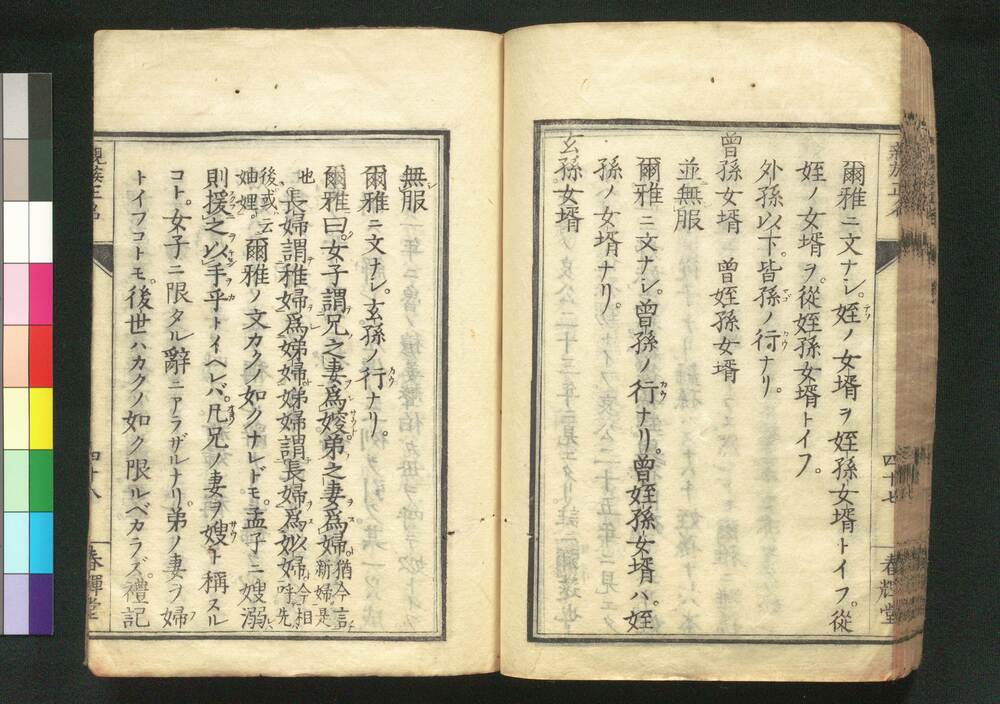 爾雅ニ文ナシ。姪ノ女壻ヲ姪孫女壻トイフ。從
姪ノ女壻ヲ。從姪孫女壻トイフ。
外孫以下。皆孫ノ行ナリ。
曾孫女壻　曾姪孫女壻
並無服
爾雅ニ文ナシ。曾孫ノ行ナリ。曾姪孫女壻ハ。姪
孫ノ女壻ナリ。
玄孫女壻
四十七
春輝堂
無服
爾雅ニ文ナシ。玄孫ノ行ナリ。
爾雅曰。女子謂兄之妻爲嫂。弟之妻爲婦。猶今言新婦是
也長婦謂稚婦爲娣婦娣婦謂長婦爲姒婦今相呼先
後或云妯娌。爾雅ノ文カクノ如クナレドモ。孟子ニ嫂溺
則援之以手乎トイヘレバ。凡兄ノ妻ヲ嫂ト稱スル
コト。女子ニ限タル辭ニアラザルナリ。弟ノ妻ヲ婦
トイフコトモ。後世ハカクノ如ク限ルベカラズ。禮記
親族正名
四十八
春輝堂